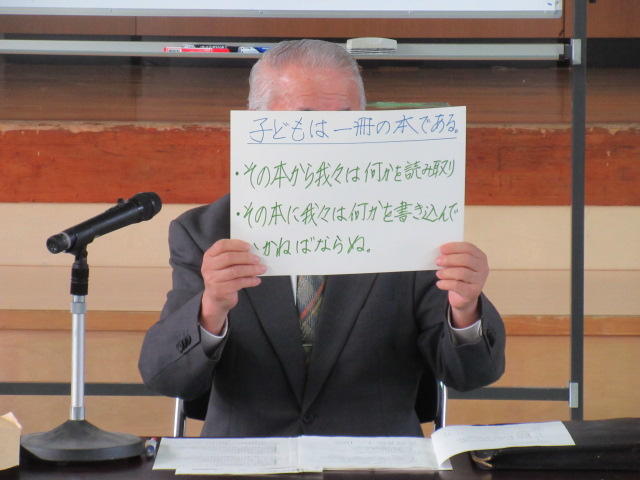 子どもは一冊の本である。
・その本から我々は何かを読み取り
・その本に我々は何かを書き込んで
かねばならぬ。